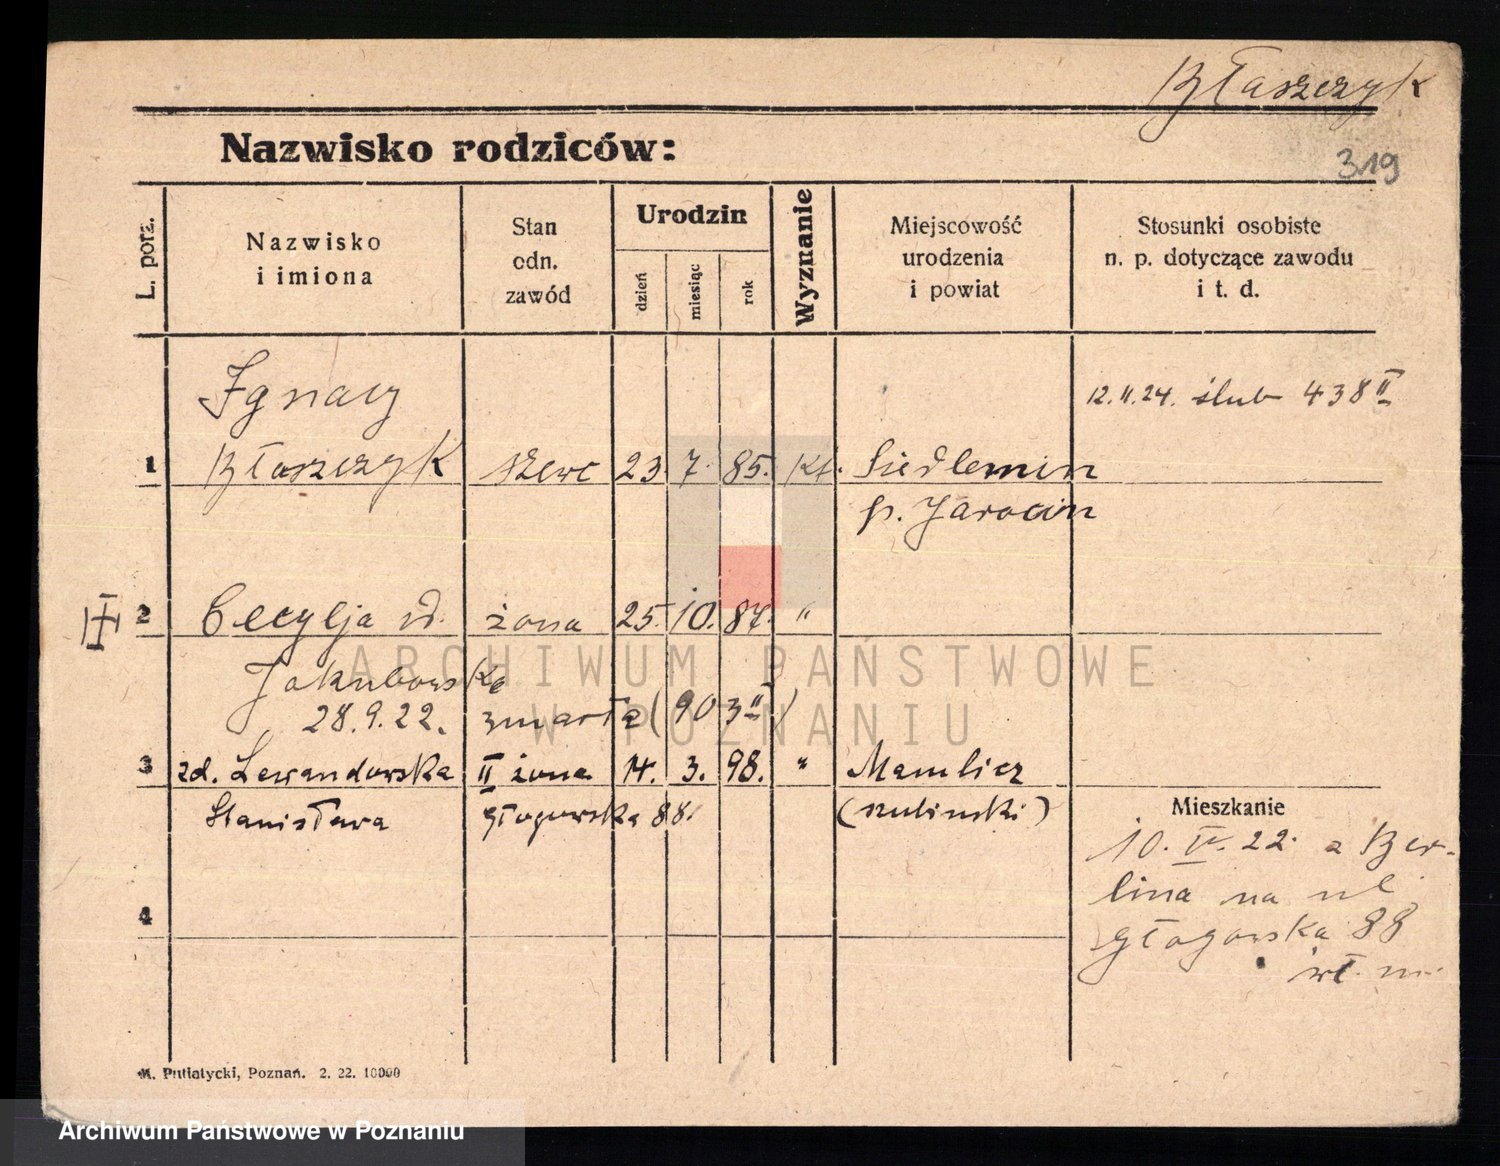 Błaszczyk
319
Nazwisko rodziców:
L. porz.
Nazwisko
i imiona
Stan
odn.
zawód
Urodzin
dzień
miesiąc
rok
Wyznanie
Miejscowość
urodzenia
i powiat
Stosunki osobiste
n. p. dotyczące zawodu
i t. d.
Ignacy
12.II.24. ślub 438 II
1 Błaszczyk szewc 23 7. 85. kt. Siedlemin
p. Jarocin
III 2 Cecylja zd. żona 25. 10. 87. "
Jakubowska
28.9.22. zmarła (90 3 II)
3 zd. Lewandowska II żona 14. 3. 98. " Mamlicz
Stanisława Głogowska 88. (szubinski)
Mieszkanie
10. IV. 22. z Ber-
lina na ul
Głogowska 88
wł. m.
4
M. Putiatycki, Poznań. 2. 22. 10000
ARCHIWUM PAŃSTWOWE
W POZNANIU
Archiwum Państwowe w Poznaniu